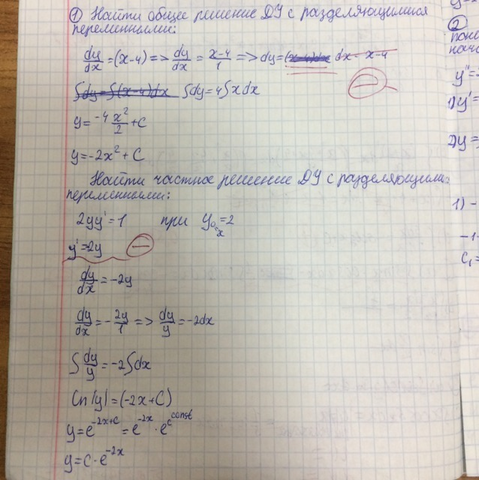 ① Найти общее решение ДУ с разделяющимися
переменными:
dy/dx = (x-4) => dy/dx = x-4/1 => dy = (x-4)dx dx - x-4
∫dy = ∫(x-4)dx ∫dy = 4∫xdx
y = -4x²/2 + C
y = -2x² + C
Найти частное решение ДУ с разделяющими
переменными:
2yy' = 1 при y = 2
y' = 2y
dy/dx = -2y
dy/dx = -2y/1 => dy/y = -2dx
∫dy/y = -2∫dx
Cn|y| = (-2x+C)
y = e^-2x+C = e^-2x · e^C const
y = C · e^-2x
②
y''
y'
2y =
1) -
-1
C₁ =